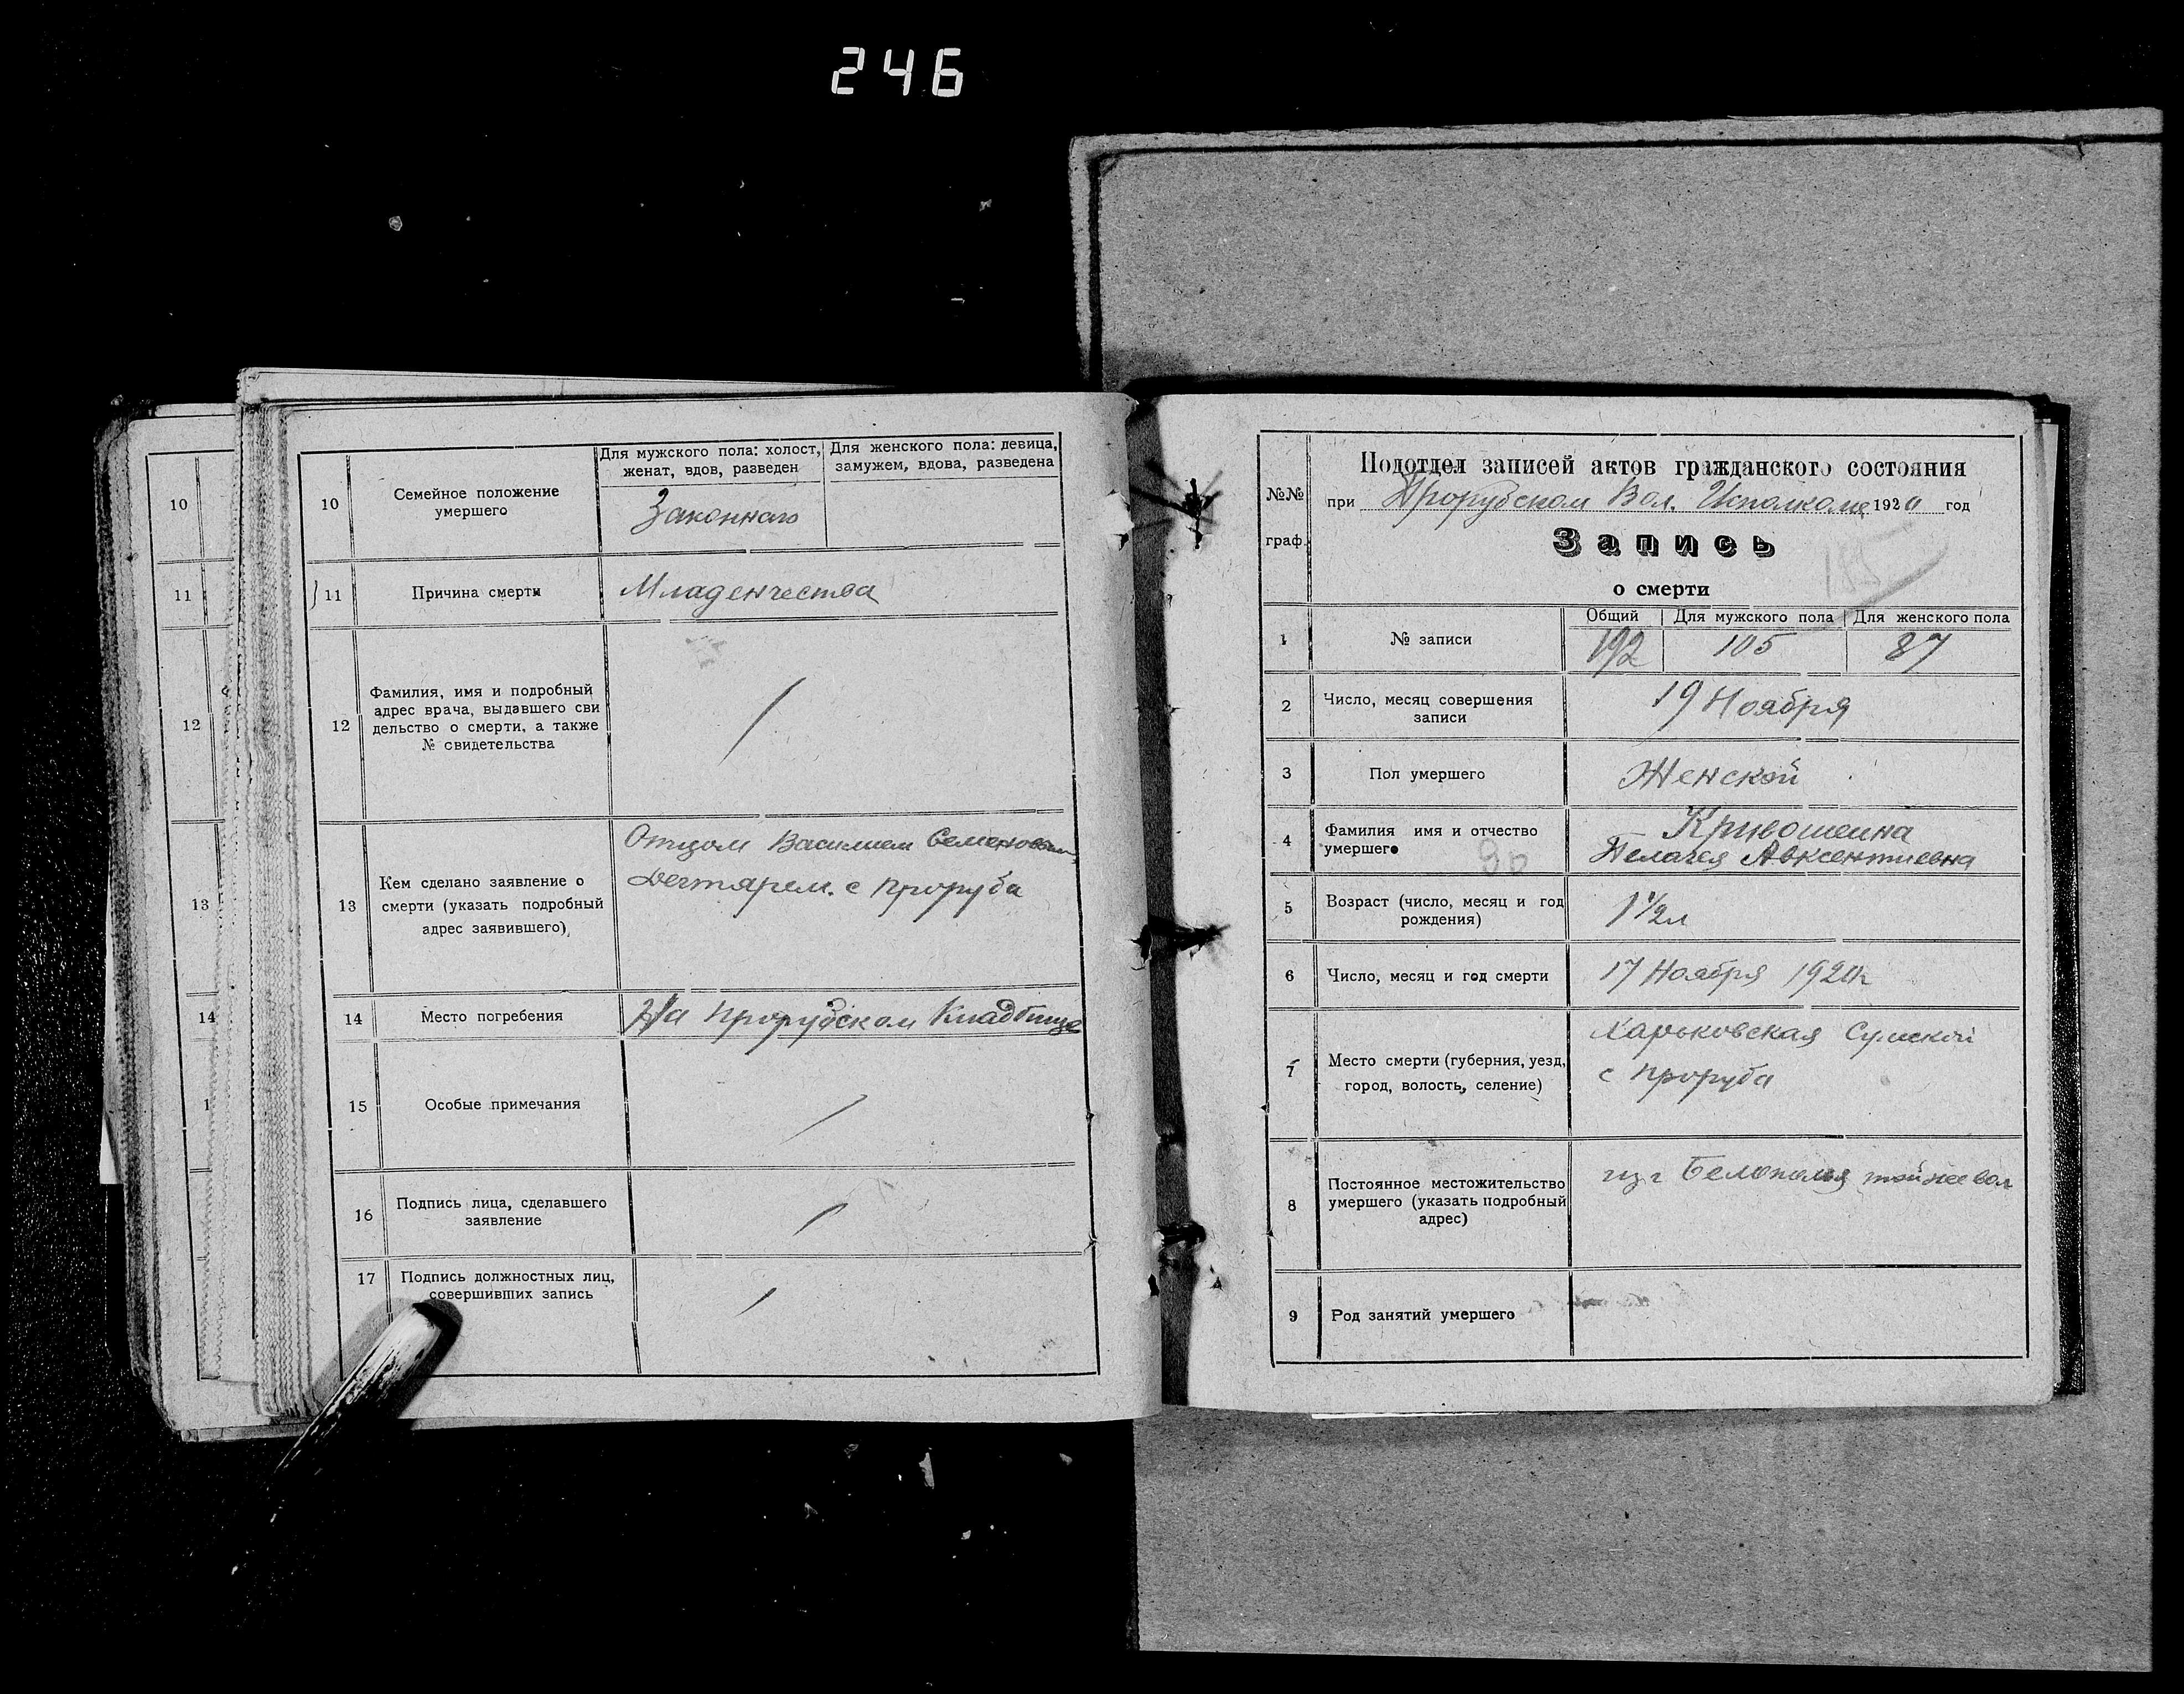 246
10
11
12
13
14
1
10
Семейное положение
умершего
Для мужского пола: холост,
женат, вдов, разведен
Для женского пола: девица,
замужем, вдова, разведена
Законнаго
11
Причина смерти
Младенчества
12
Фамилия, имя и подробный
адрес врача, выдавшего сви
дельство о смерти, а также
№ свидетельства
13
Кем сделано заявление о
смерти (указать подробный
адрес заявившего),
Отцом Василием Семеновым
Дегтярем. с Проруба
14
Место погребения
На Прорубском Кладбище
15
Особые примечания
16
Подпись лица, сделавшего
заявление
17
Подпись должностных лиц,
совершивших запись
№№
граф.
Подотдел записей актов гражданского состояния
при Прорубском Вол. Исполкоме 1920 год
Запись
185
о смерти
1
№ записи
Общий
Для мужского пола
Для женского пола
192
105
87
2
Число, месяц совершения
записи
19 Ноября
3
Пол умершего
Женской
4
Фамилия имя и отчество
умершего
90
Кривошеина
Пелагея Авксентиевна
5
Возраст (число, месяц и год
рождения)
1 1/2 л
6
Число, месяц и год смерти
17 Ноября 1920г
7
Место смерти (губерния, уезд,
город, волость, селение)
Харьковская Сумской
с Проруба
8
Постоянное местожительство
умершего (указать подробный
адрес)
из г Белополья тойже вол
9
Род занятий умершего